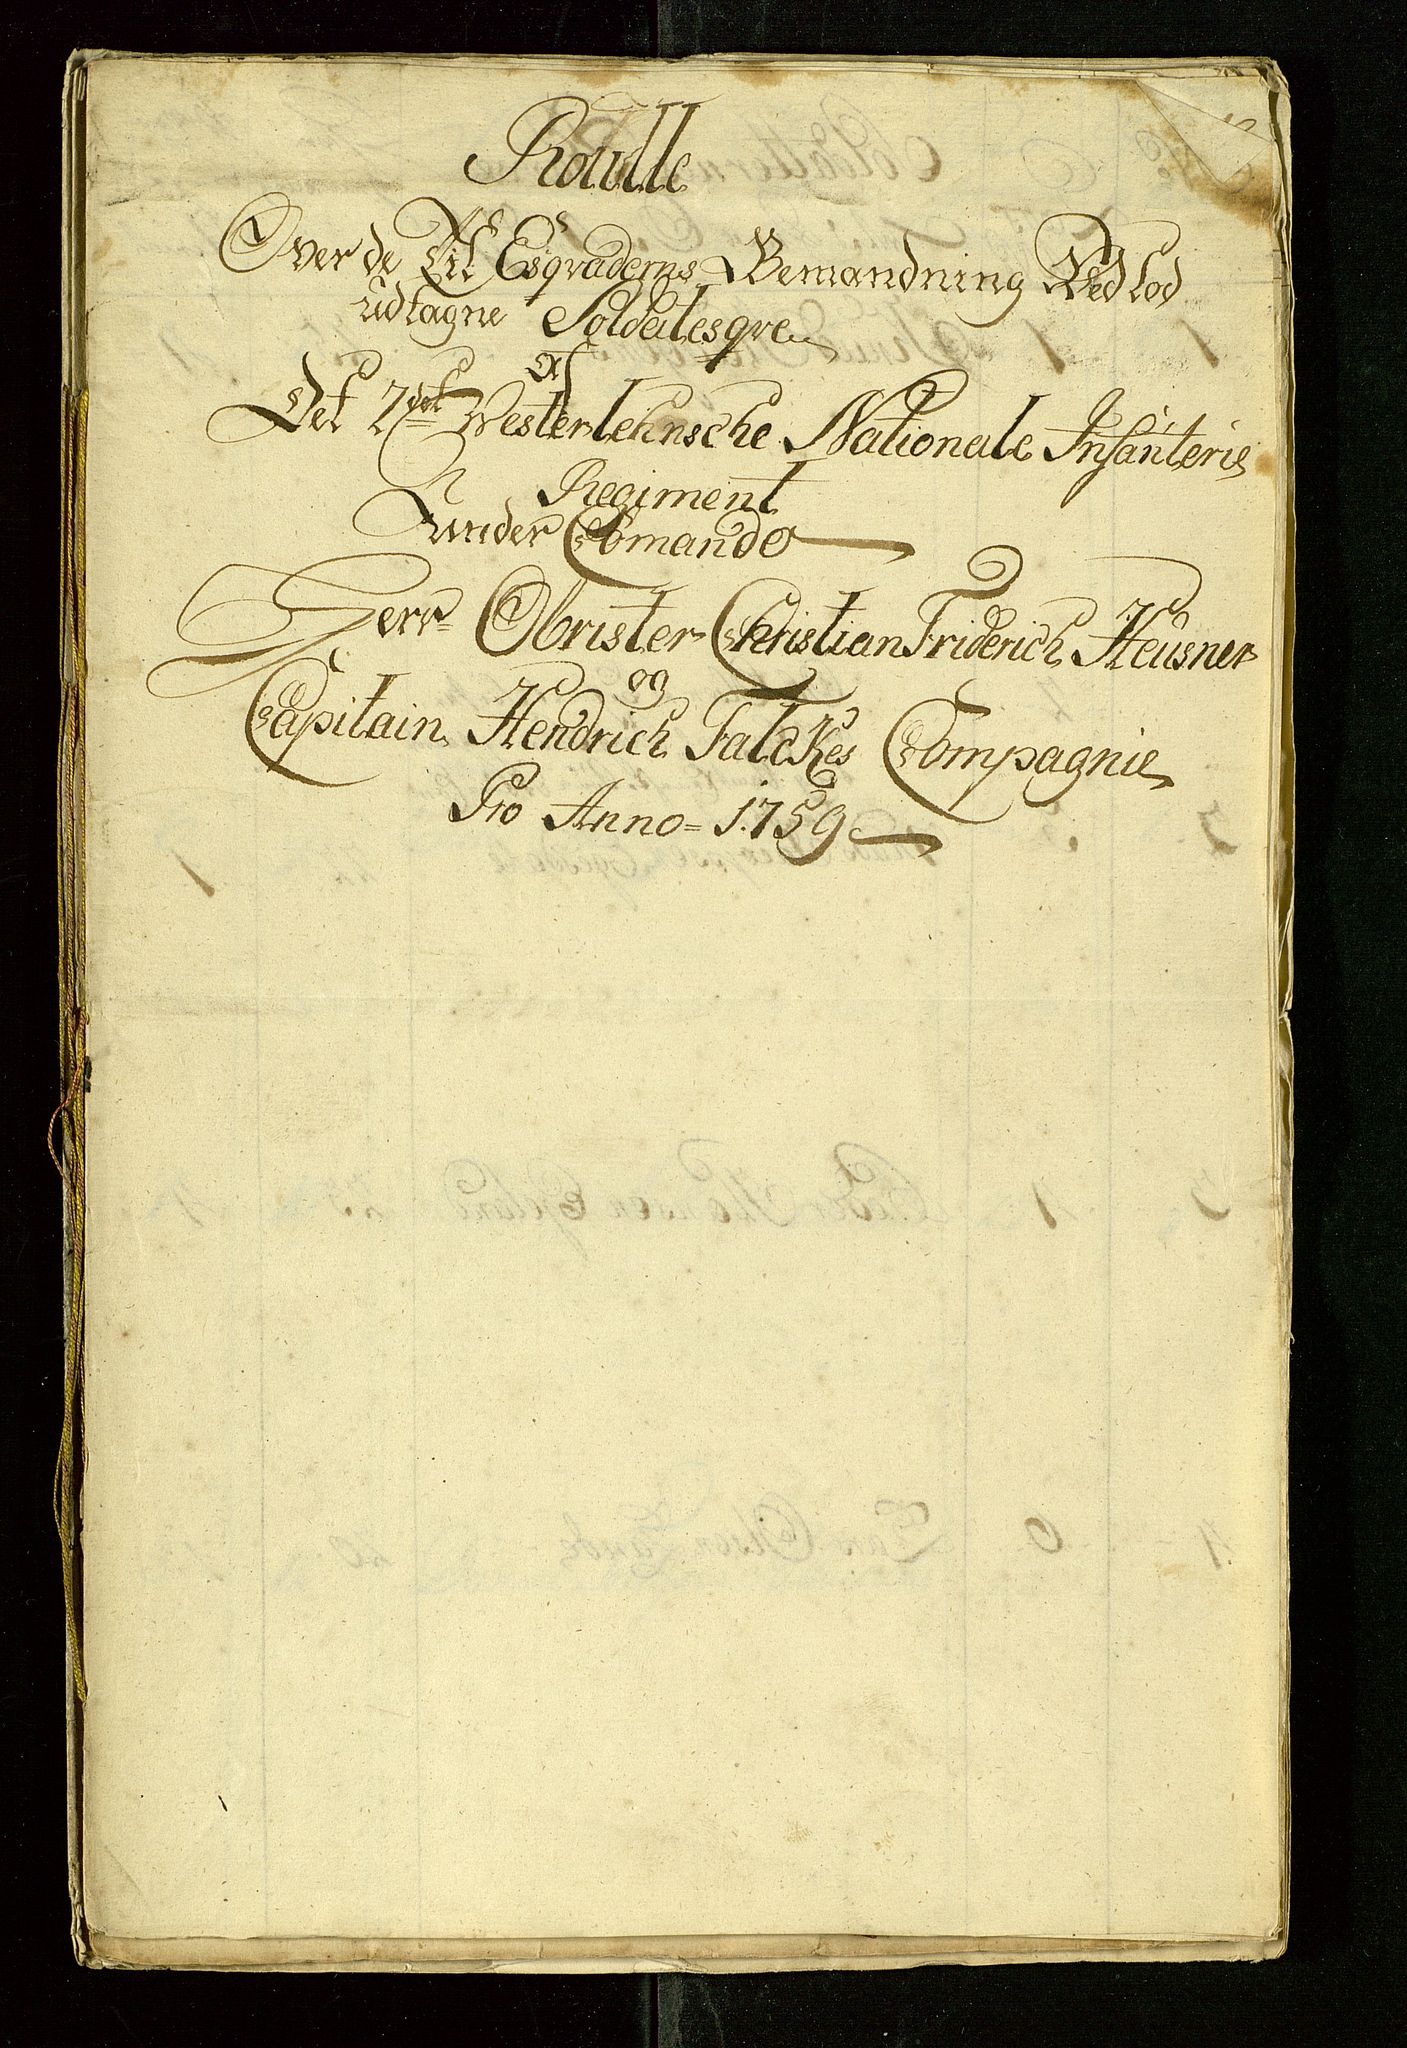 Roulle
Over de Til Esqvaderns Bemandning Ved lod
udtagne Soldatesqve
af
Det 2det Westerlehnsche Nationale Infanterie
Regiment
under Comando
Herr Obrister Christian Friderich Heusner
og
Capitain Hendrich Falckes Compagnie
Pro Anno= 1759